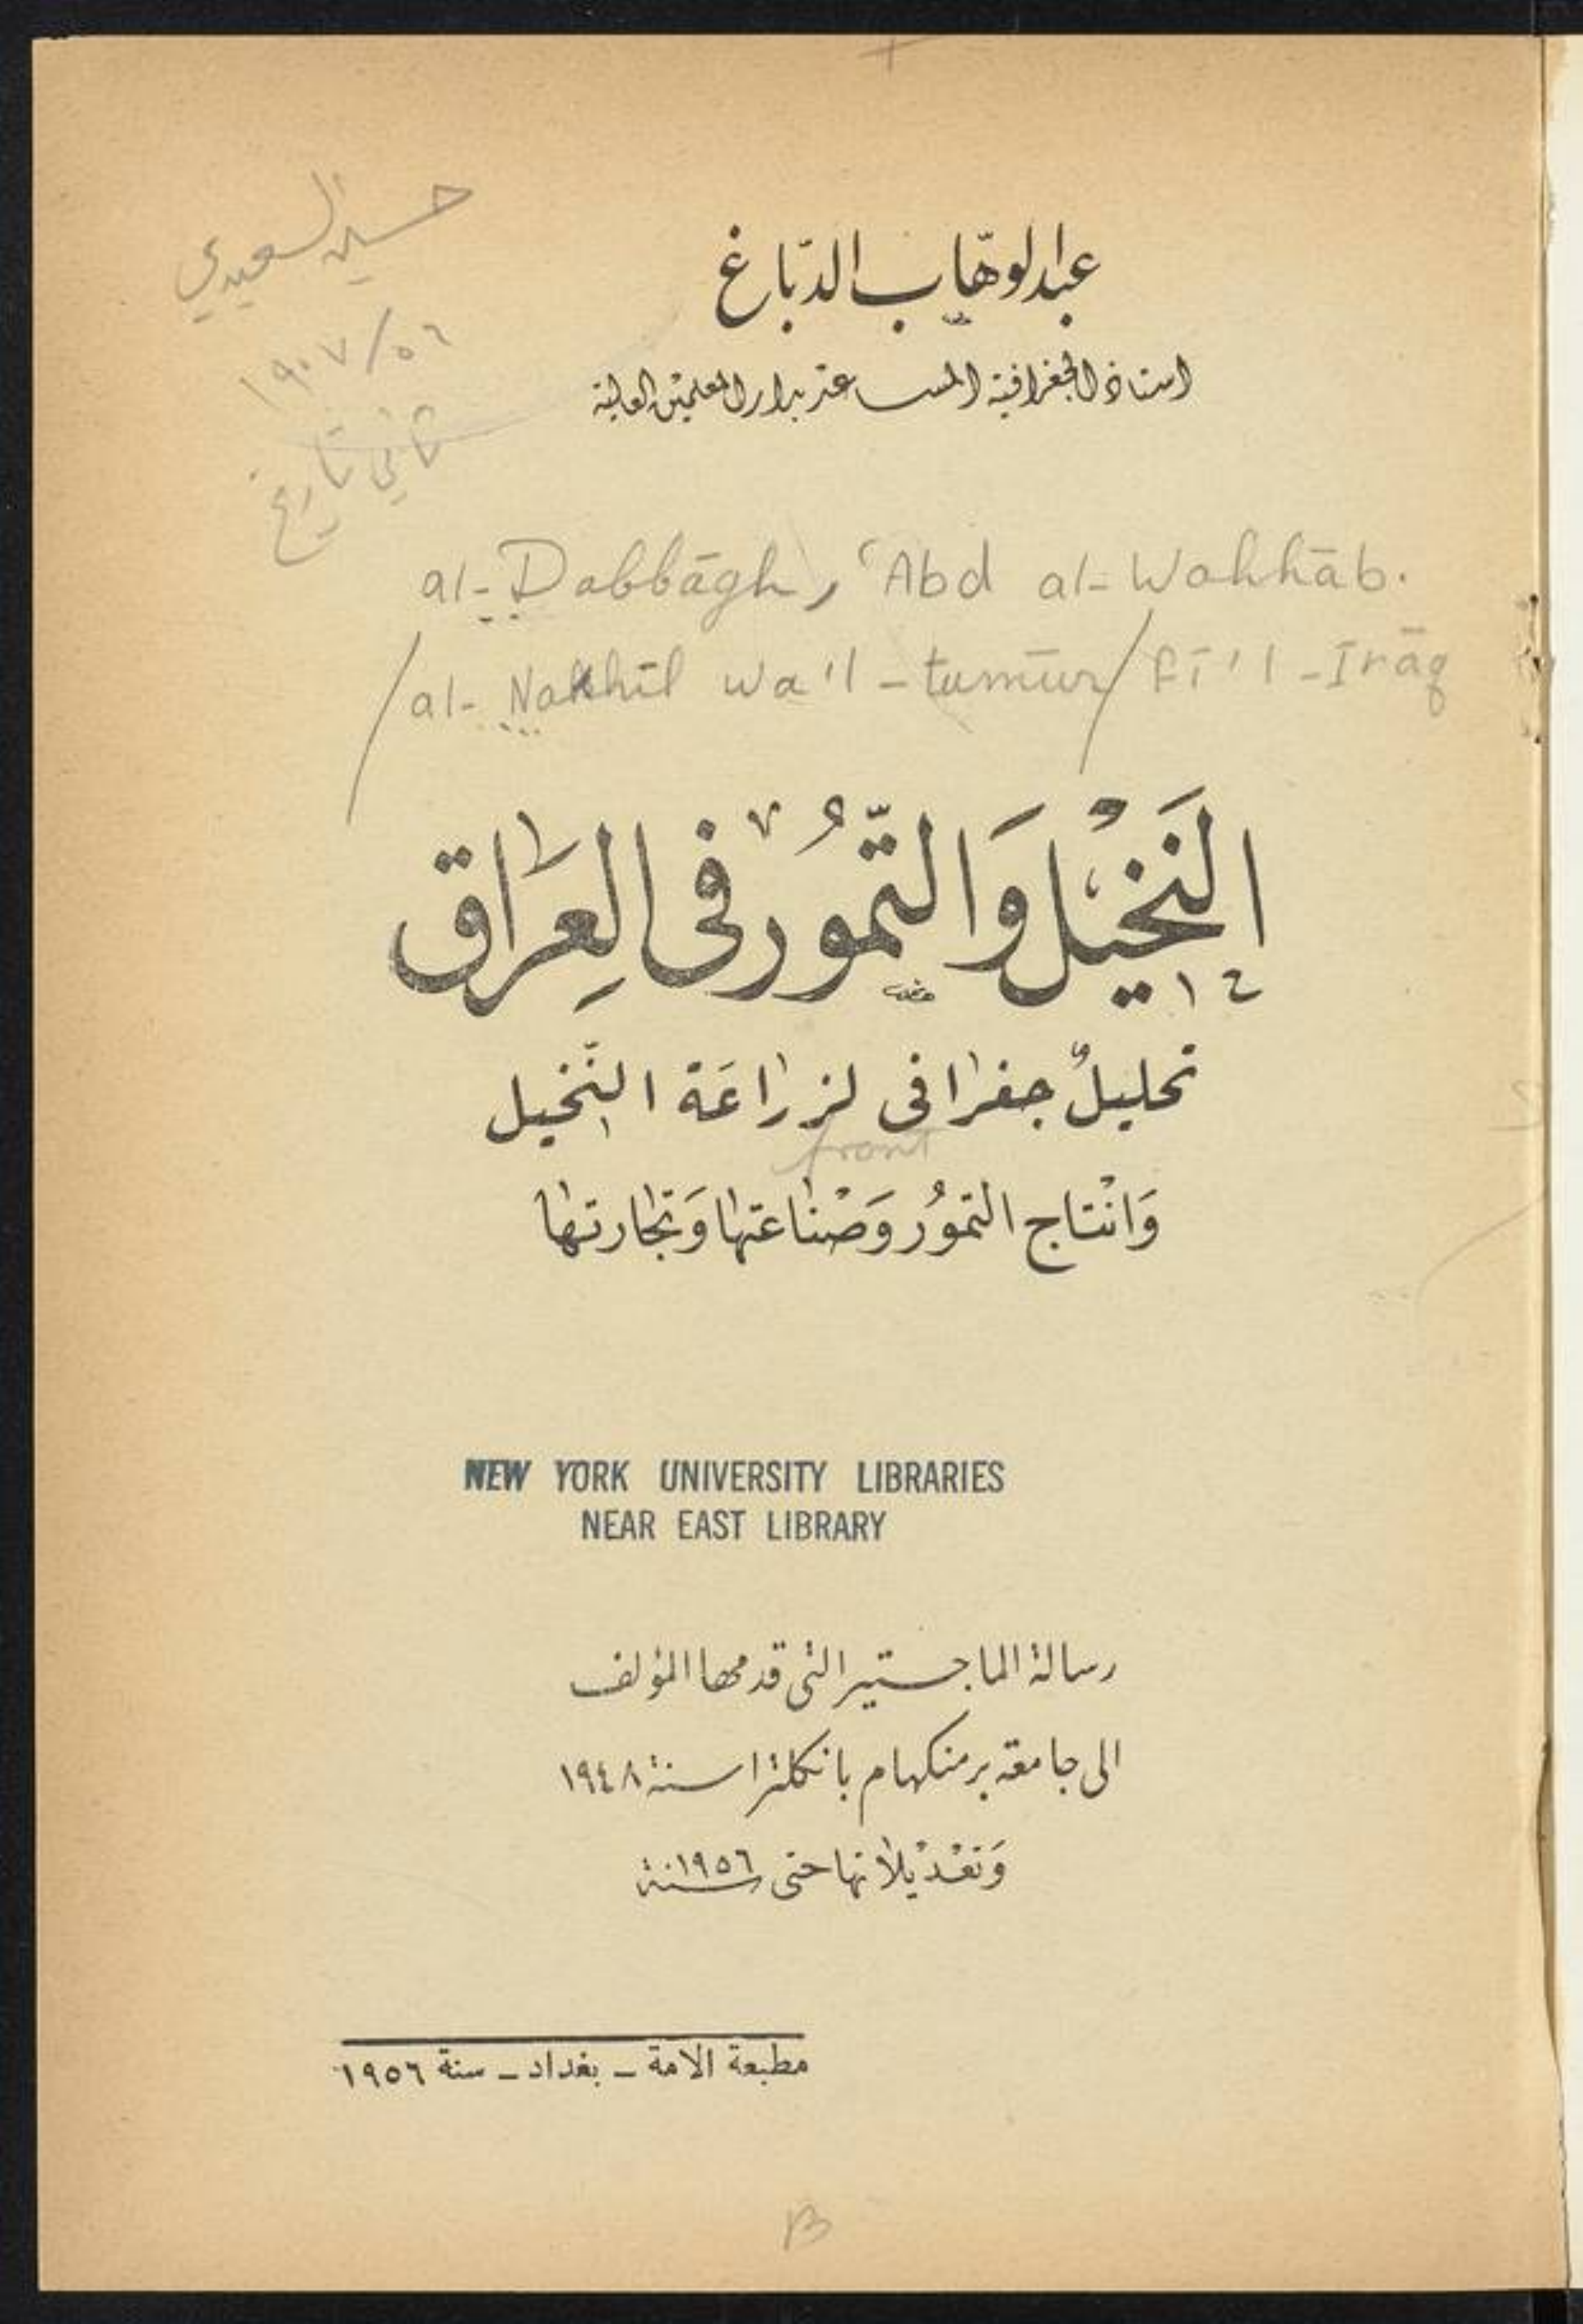 حسين السعيدي
عبد الوهّاب الدّباغ
١٩٠٧/٥٦
استاذ الجغرافية المساعد بدار المعلمين العالية
ثاني تاريخ
al-Dabbāgh, ʿAbd al-Wahhāb.
/al-Nakhīl wa'l-tumūr/ fī'l-Irāq
النَخيْل وَالتّموُر في العِرَاق
تحليلٌ جغرافي لزراعَة النَّخيل
front
وَانْتاج التموُر وَصْناعتها وَتجارتها
NEW YORK UNIVERSITY LIBRARIES
NEAR EAST LIBRARY
رسالة الماجستير التي قدمها المؤلف
الى جامعة برمنكهام بانكلترا سنة ١٩٤٨
وَتعْديْلاتها حتى سنة ١٩٥٦
مطبعة الامة ـ بغداد ـ سنة ١٩٥٦
B